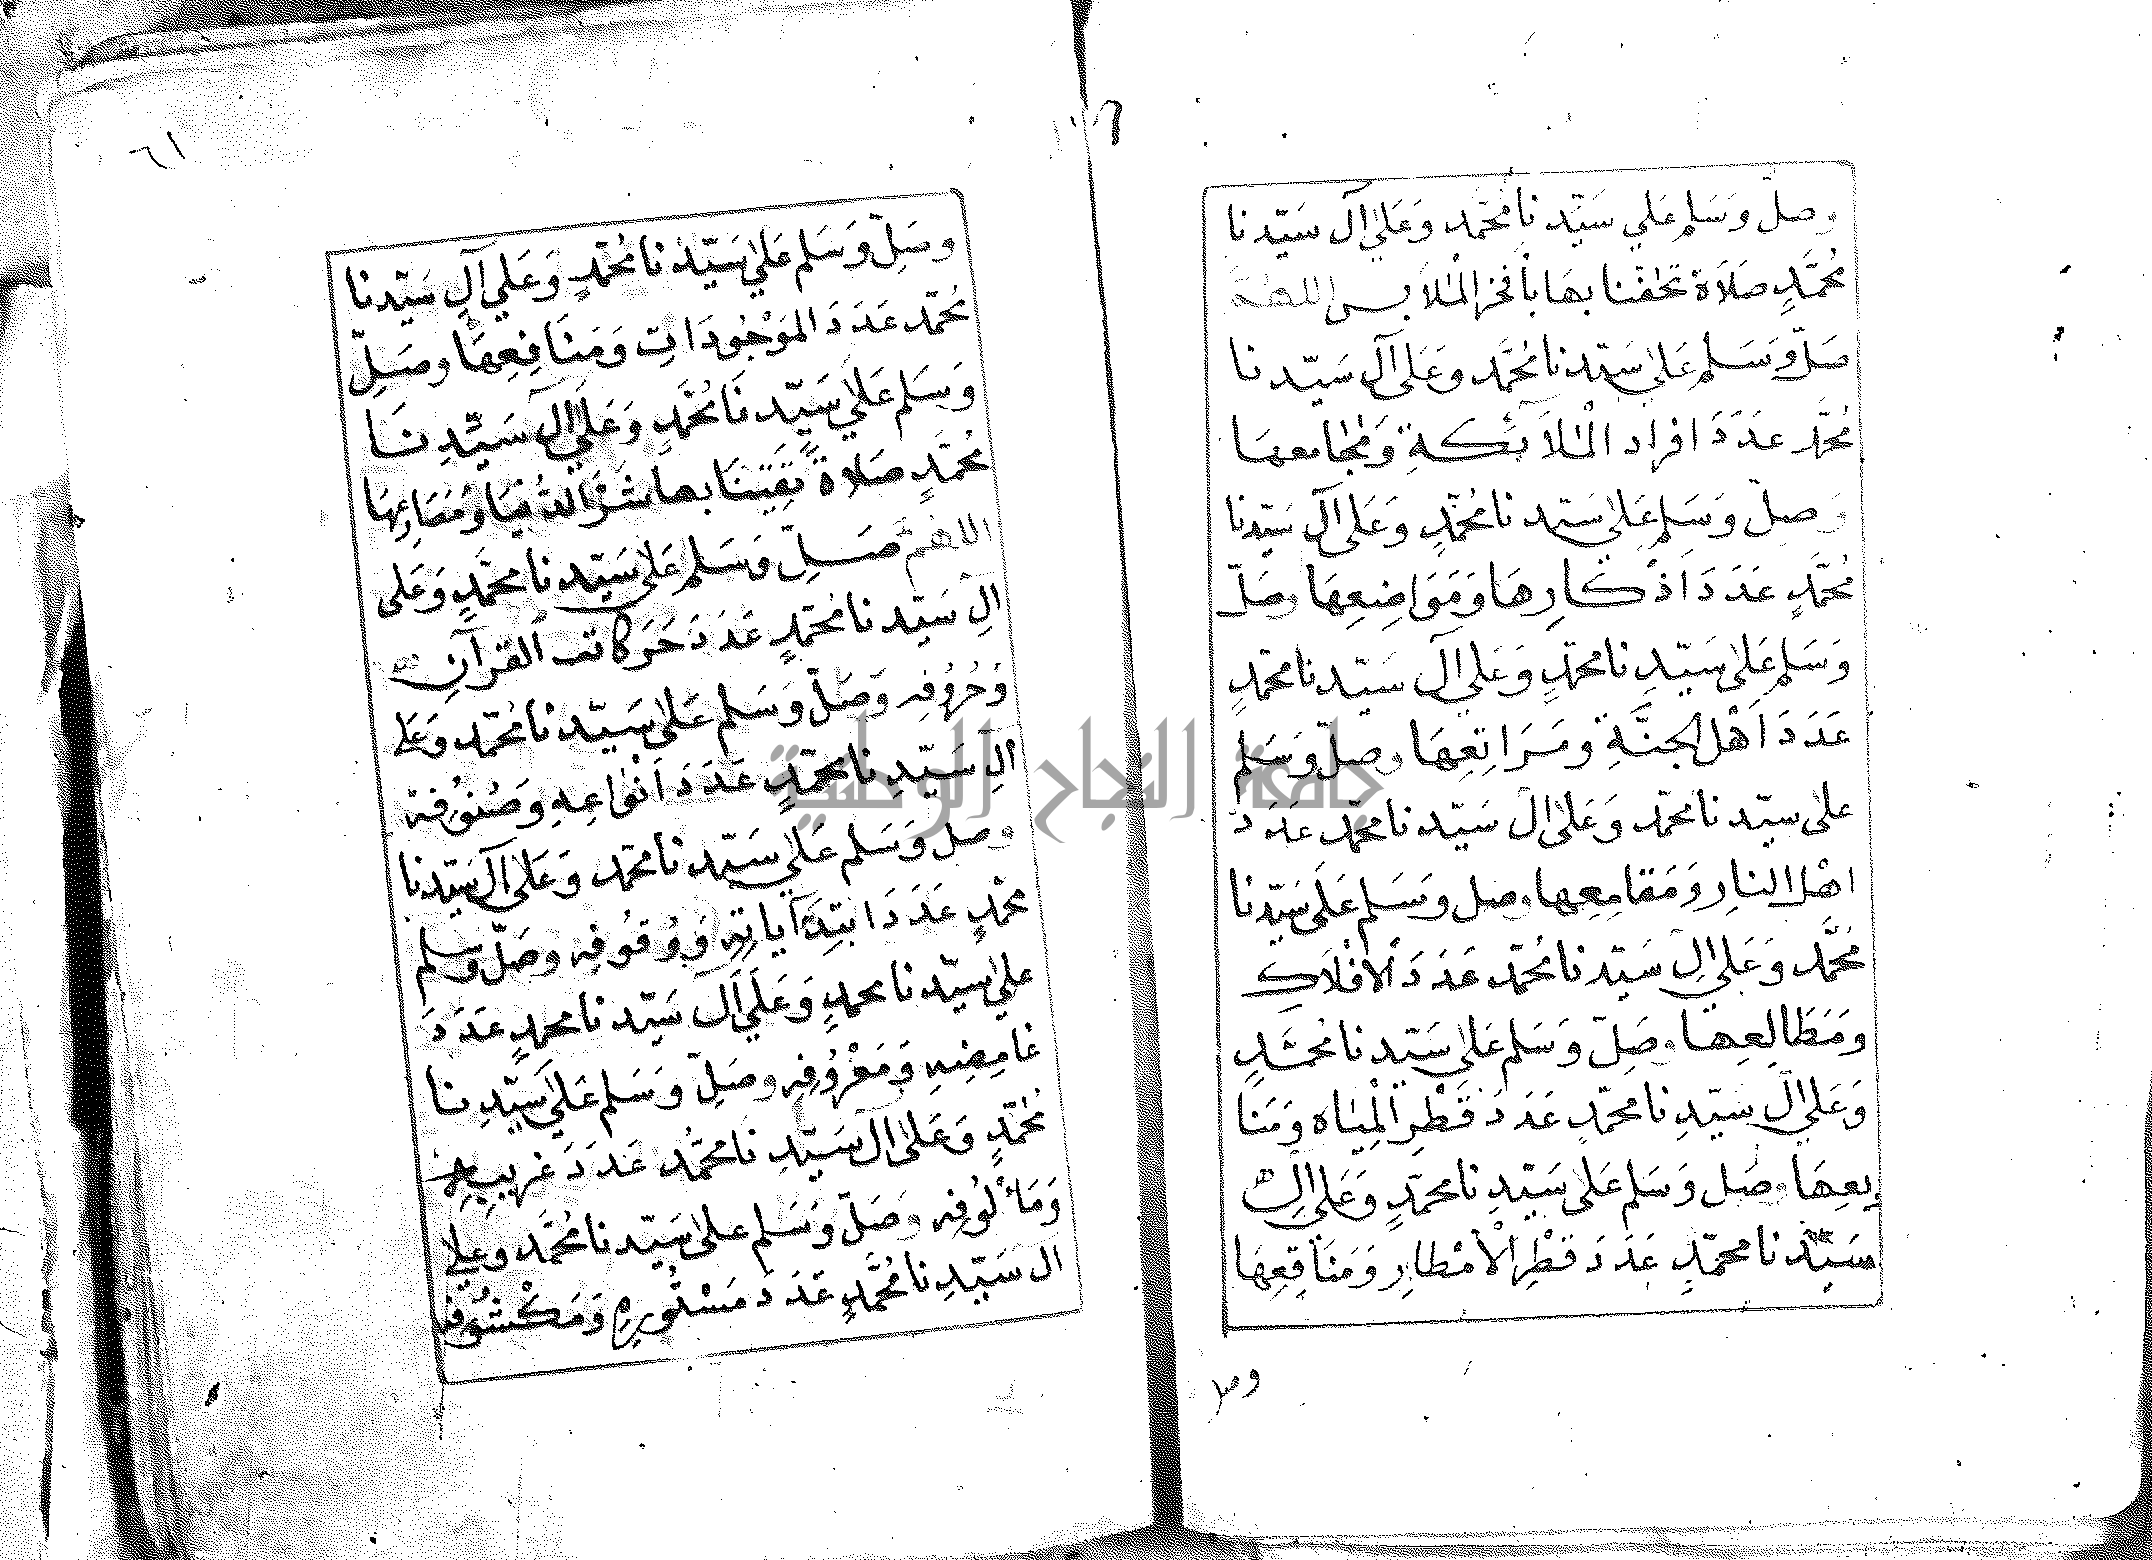 وصلّ وَسَلم عَلي سَيّدنا محمَّد وَعَليٰ آل سَيّدنا
مُحمَّدٍ صَلَاة تحفنا بهَا بأفخر الْملَابس اللهمّ
صَلّ وَسَلم عَليٰ سَيّدنا مُحمَّد وَعَلى آل سَيّدنا
مُحمّد عدَدَ افراد الْملَائكةِ وَمجَامعهَا
وَصلّ وَسَلم عَليٰ سَيّدنا مُحمّدٍ وَعَلى آل سَيّدنا
مُحمَّدٍ عَدَدَ اَذْكارِهَا وَمَوَاضِعِهَا وصَلّ
وَسَلم عَليٰ سَيّدِنا محمّدٍ وَعَلي آل سَيّدنا محمّدٍ
عَدَدَ اَهْل الجنَّةِ ومَرَاتِعِهَا وصلّ وَسَلم
علىٰ سيّدنا محمّد وَعَلىٰ ال سَيّدنا محمّد عَدَدَ
اهْل النارِ وَمَقامِعِها وصل وَسَلم عَلَى سَيّدنَا
مُحمَّد وَعَلي الِ سَيّدنا مُحمّد عَدَدَ الْأفلَاك
وَمَطَالِعِهَا وصَلّ وَسَلم عَليٰ سَيّدنا محمّدٍ
وَعَلي الِ سيّدِنا محمّدٍ عَدَدَ قَطْرِ الْمِيَاه وَمَنَا
بِعِهَا وصَل وَسَلم عَلىٰ سَيّدِنا محمّدٍ وَعَلي الِ
سَيّدنا محمّدٍ عَدَدَ قطْرِ الْأمْطارِ وَمَنَافِعِهَا
وصل
٦١
وصَلّ وَسَلم عَليٰ سَيّدنا مُحمّدٍ وَعَلي آلِ سَيّدنا
مُحمّد عَدَدَ الموَجُودَاتِ وَمَنَافِعِهَا وصَلّ
وَسَلم عَليٰ سَيّدنَا مُحمَّدٍ وَعَلَي آل سَيّدِنَا
مُحمّدٍ صَلاةً تقِينَا بها شرّ الدنيَا وَمُصَارِعِهَا
اللهمّ صَلّ وَسَلم عَلىٰ سَيّدِنا محمَّدٍ وَعَلى
الِ سَيّدنا مُحمّدٍ عَدَدَ حَرَكات القرآنِ
وَحُرُوُفِه وَصَلّ وَسَلم عَلىٰ سَيّدنا مُحمّد وَعَلي
الِ سَيّدِنا محمّدٍ عَدَدَ اَنْواعِهِ وَصُنوُفِه
وصل وَسَلم عَلي سَيّدنا محمّد وَعَلىٰ آل سَيّدنا
محمّدٍ عَدَدَ ابتِدَآء آياتِهِ وَوُقوُفِه وصَلّ وَسَلم
علىٰ سَيّدنا محمدٍ وَعَلَي آل سَيّدنا محمدٍ عَدَدَ
غامِضِهِ وَمَعْرُوُفِهِ وصَلّ وَسَلم عَليٰ سَيّدِنا
مُحمّدٍ وَعَلىٰ ال سَيّدِنا محمَّد عَدَدَ غريبِهِ
وَمَاْلُوفِه وصَلّ وَسَلم علىٰ سَيّدنا مُحمَّد وعَلي
ال سَيّدِنا مُحمَّدٍ عَدَدَ مَسْتُورِهِ وَمَكْشُوُفِه
جامعة النجاح الوطنية